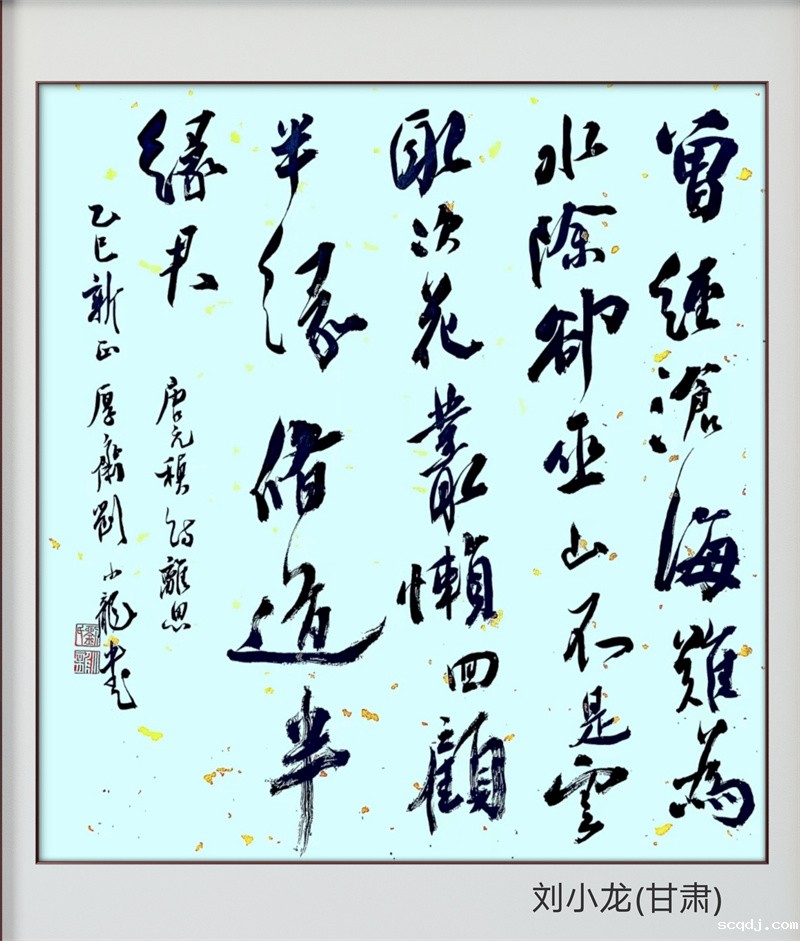 曾經滄海難為
水除卻巫山不是雲
取次花叢懶回顧
半緣脩道半
緣君
唐元稹詩離思
乙巳新正 厚齋劉小龍書
刘小龙(甘肃)
scqdj.com